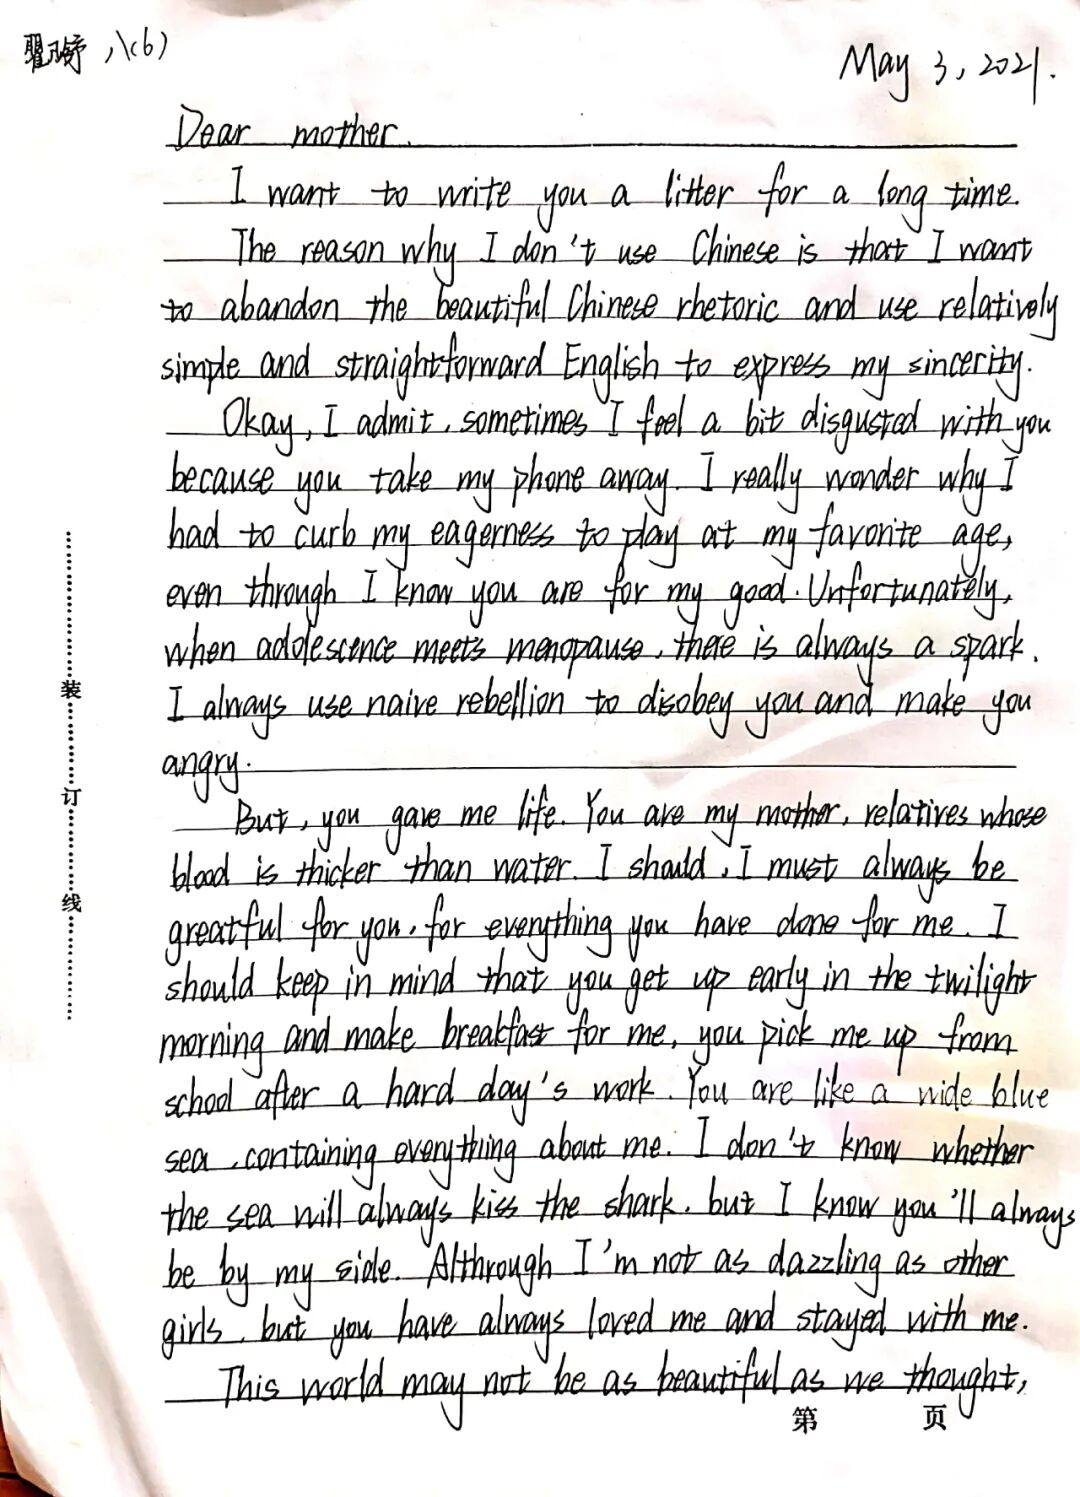 翟 八(6)
May 3, 2021.
Dear mother.
I want to write you a litter for a long time.
The reason why I don't use Chinese is that I want
to abandon the beautiful Chinese rhetoric and use relatively
simple and straightforward English to express my sincerity.
Okay, I admit, sometimes I feel a bit disgusted with you
because you take my phone away. I really wonder why I
had to curb my eagerness to play at my favorite age,
even through I know you are for my good. Unfortunately,
when adolescence meets menopause, there is always a spark.
I always use naive rebellion to disobey you and make you
angry.
But, you gave me life. You are my mother, relatives whose
blood is thicker than water. I should, I must always be
greatful for you, for everything you have done for me. I
should keep in mind that you get up early in the twilight
morning and make breakfast for me, you pick me up from
school after a hard day's work. You are like a wide blue
sea, containing everything about me. I don't know whether
the sea will always kiss the shark, but I know you'll always
be by my side. Althrough I'm not as dazzling as other
girls, but you have always loved me and stayed with me.
This world may not be as beautiful as we thought,
第 页
装
订
线